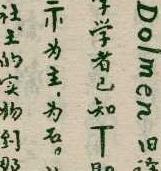 Dolmen 旧译
学者已知丅
示为主，为石。
社主的实物到那